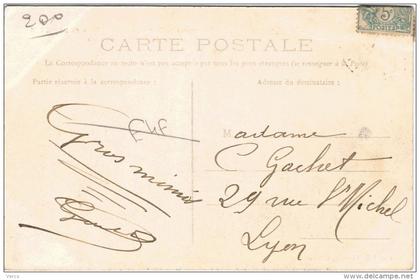 200
5
POSTES
CARTE POSTALE
La Correspondance au recto n'est pas acceptée par tous les pays étrangers (se renseigner à la Poste)
Partie réservée à la correspondance
Adresse du destinataire
Madame
C Gachet
29 rue St Michel
Lyon
Gros mimis